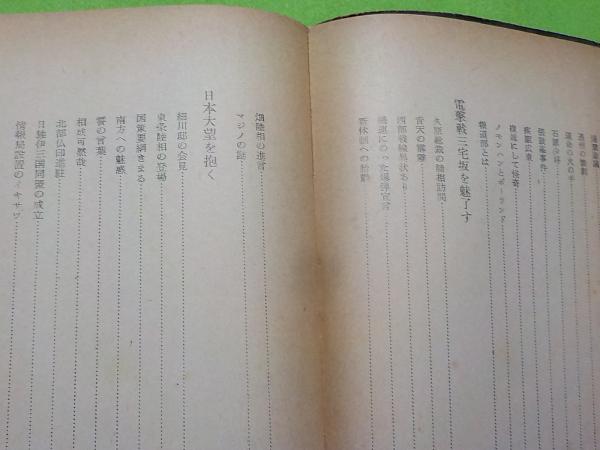 通州の惨劇
運命の火の手
石原少将
張鼓峯事件
疾風広東
複雑にして怪奇
ノモンハンとポーランド
報道部とは
電撃戦三宅坂を魅了す
久原総裁の陸相訪問
青天の霹靂
西部戦線異状あり
機運にのった爆弾宣言
新体制への胎動
畑陸相の進言
マジノの話
日本大望を抱く
細川邸の会見
東条陸相の登場
国策要綱きまる
南方への魅惑
雲の言葉
相成可然哉
北部仏印進駐
日独伊三国同盟の成立
情報局設置のイキサツ